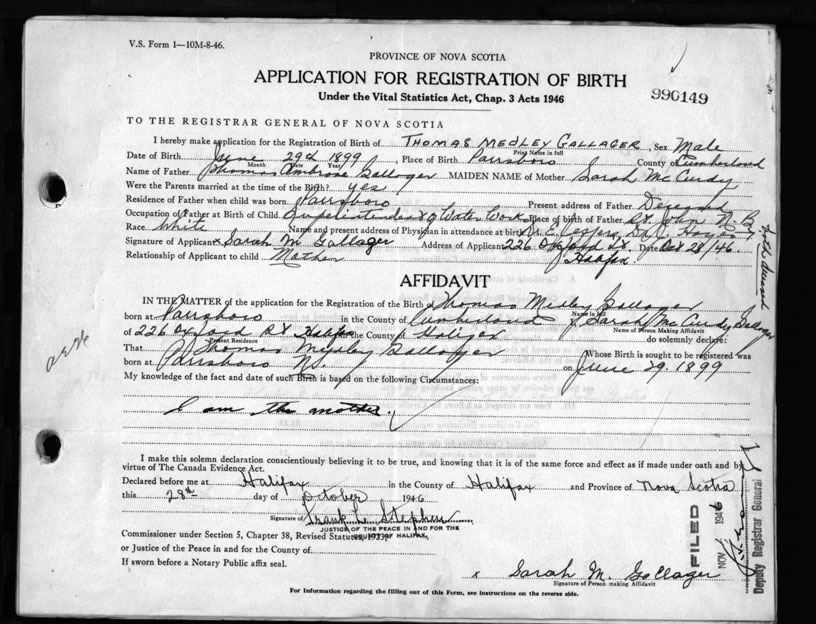 V.S. Form 1—10M-8-46.
PROVINCE OF NOVA SCOTIA
APPLICATION FOR REGISTRATION OF BIRTH
Under the Vital Statistics Act, Chap. 3 Acts 1946
990149
TO THE REGISTRAR GENERAL OF NOVA SCOTIA
I hereby make application for the Registration of Birth of THOMAS MEDLEY GALLAGER, Sex Male
Print Name in full
Date of Birth June 29th 1899, Place of Birth Parrsboro County of Cumberland
Month Date Year
Name of Father Thomas Ambrose Gallager MAIDEN NAME of Mother Sarah McCurdy
Were the Parents married at the time of the Birth? yes
Residence of Father when child was born Parrsboro Present address of Father Deceased
Occupation of Father at Birth of Child Superintendent of Water Works Place of birth of Father St. John N.B
Race White Name and present address of Physician in attendance at birth Dr.
Signature of Applicant x Sarah M Gallager Address of Applicant 226 Oxford St. Date Oct 28/46.
Relationship of Applicant to child Mother Halifax.
both deceased
AFFIDAVIT
IN THE MATTER of the application for the Registration of the Birth of Thomas Medley Gallager
Name in full
born at Parrsboro in the County of Cumberland I Sarah McCurdy Gallager
Name of Person Making Affidavit
of 226 Oxford St Halifax in the County of Halifax do solemnly declare:
Present Residence
That Thomas Medley Gallager Whose Birth is sought to be registered was
born at Parrsboro NS. on June 29, 1899
My knowledge of the fact and date of such Birth is based on the following Circumstances:
I am the mother.
I make this solemn declaration conscientiously believing it to be true, and knowing that it is of the same force and effect as if made under oath and by
virtue of The Canada Evidence Act.
Declared before me at Halifax in the County of Halifax and Province of Nova Scotia
this 28th day of October 1946
Signature of Frank L. Stephen
JUSTICE OF THE PEACE IN AND FOR THE
COUNTY OF HALIFAX.
Commissioner under Section 5, Chapter 38, Revised Statutes, 1923,
or Justice of the Peace in and for the County of
If sworn before a Notary Public affix seal.
x Sarah M. Gallager
Signature of Person making Affidavit
For Information regarding the filling out of this Form, see instructions on the reverse side.
FILED
NOV 1946
Deputy Registrar General